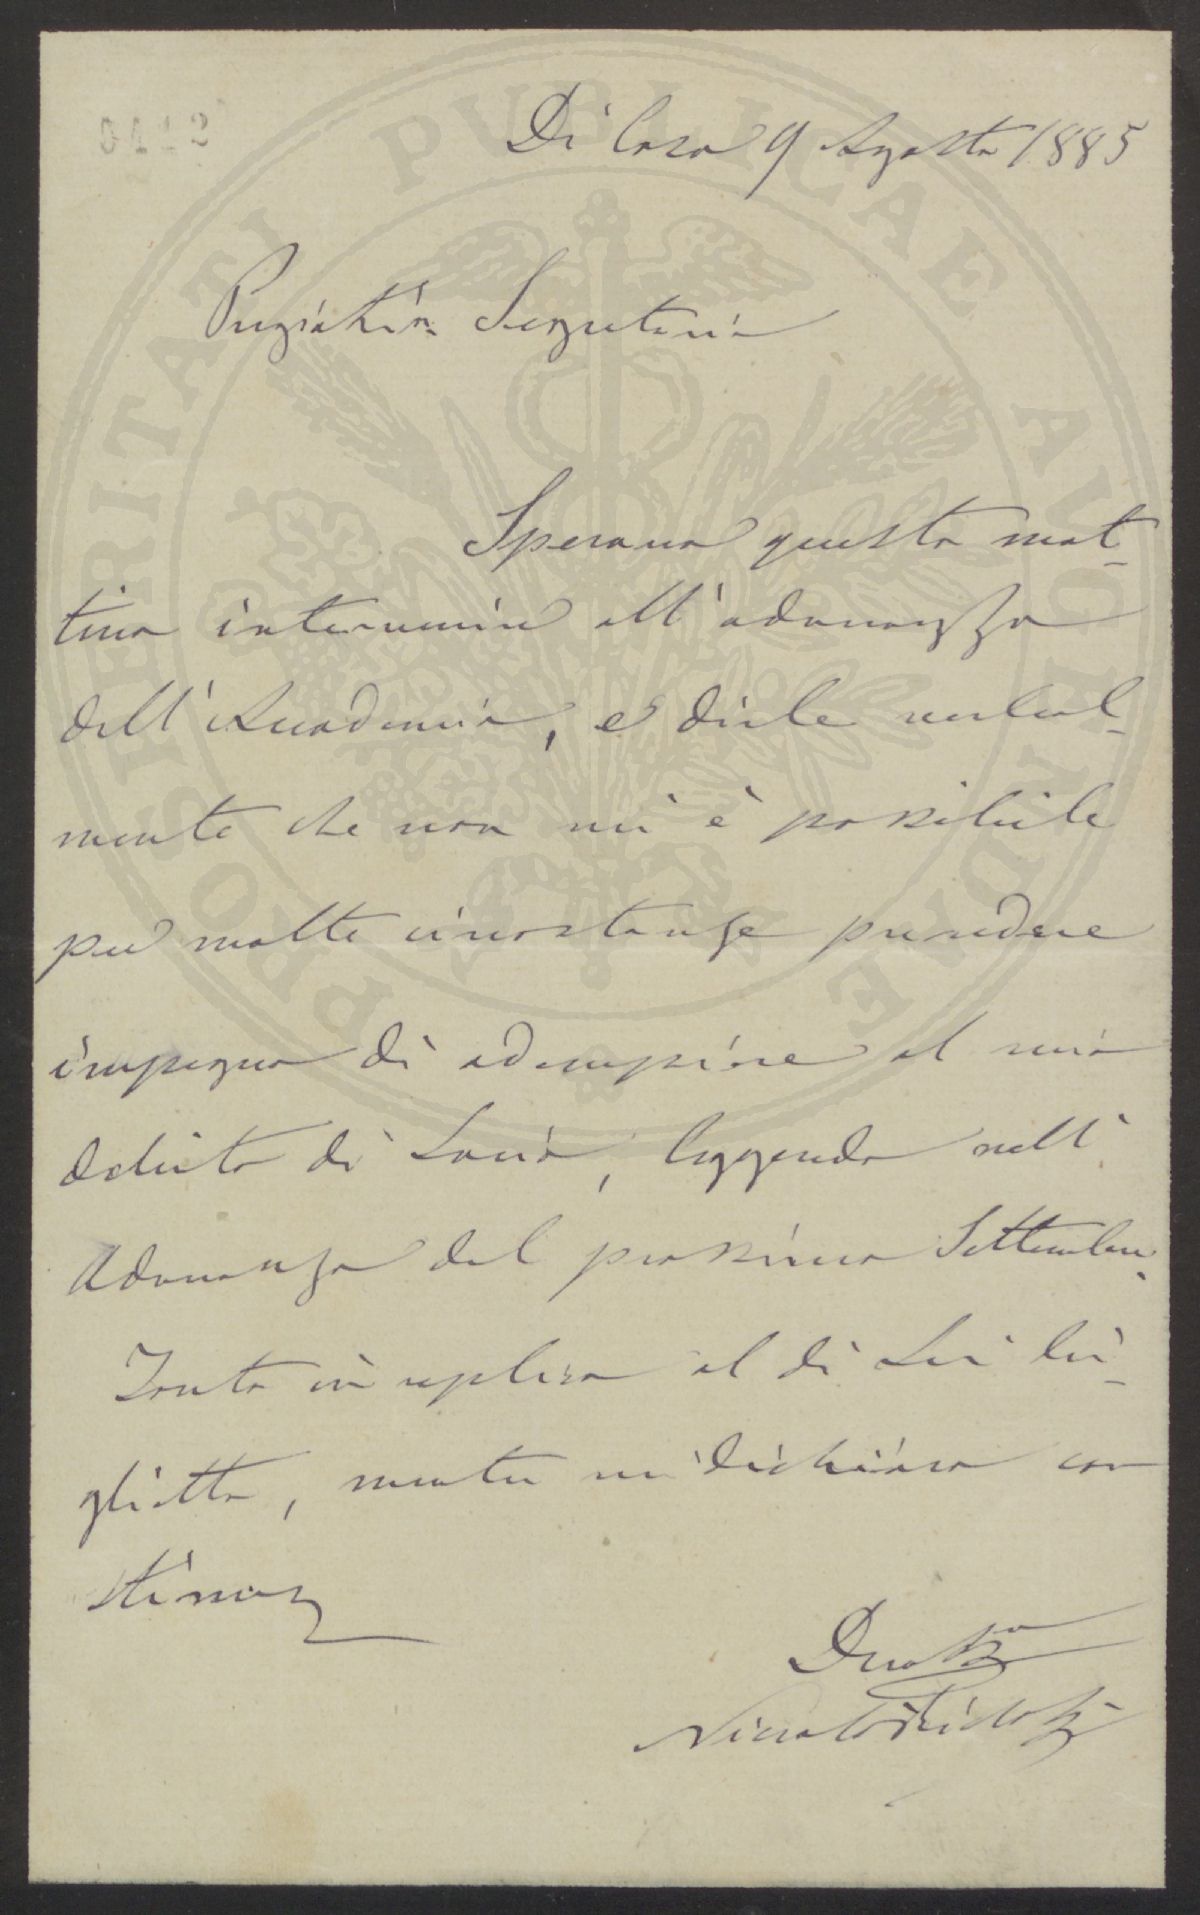 Di Casa 9 Agosto 1885
Pregiatis.mo Segretario
Sperava questa mat-
tina intervenire all'adunanza
dell'Accademia, e dirle verbal-
mente che non mi è possibile
per molte circostanze prendere
impegno di adempiere al mio
debito di Socio, leggendo nell'
Adunanza del prossimo Settembre.
Tanto in replica al di Lei bi-
glietto, mentre mi dichiaro con
stima
Devotss.mo
PROSPERITATI PUBLICAE AUGENDAE